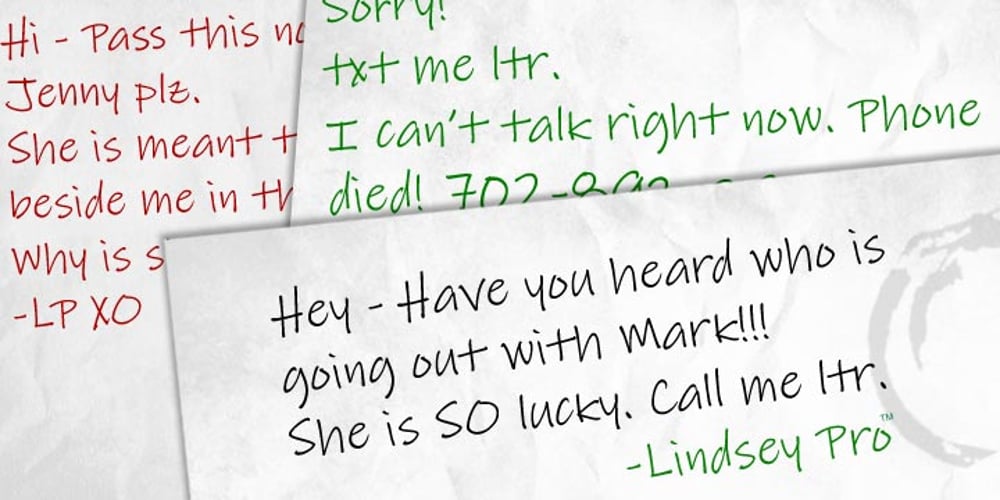 Hi - Pass this
Jenny plz.
She is meant
beside me in
Why is
-LP XO
Sorry!
txt me ltr.
I can't talk right now. Phone
died! 702-
Hey - Have you heard who is
going out with Mark!!!
She is SO lucky. Call me ltr.
-Lindsey Pro™